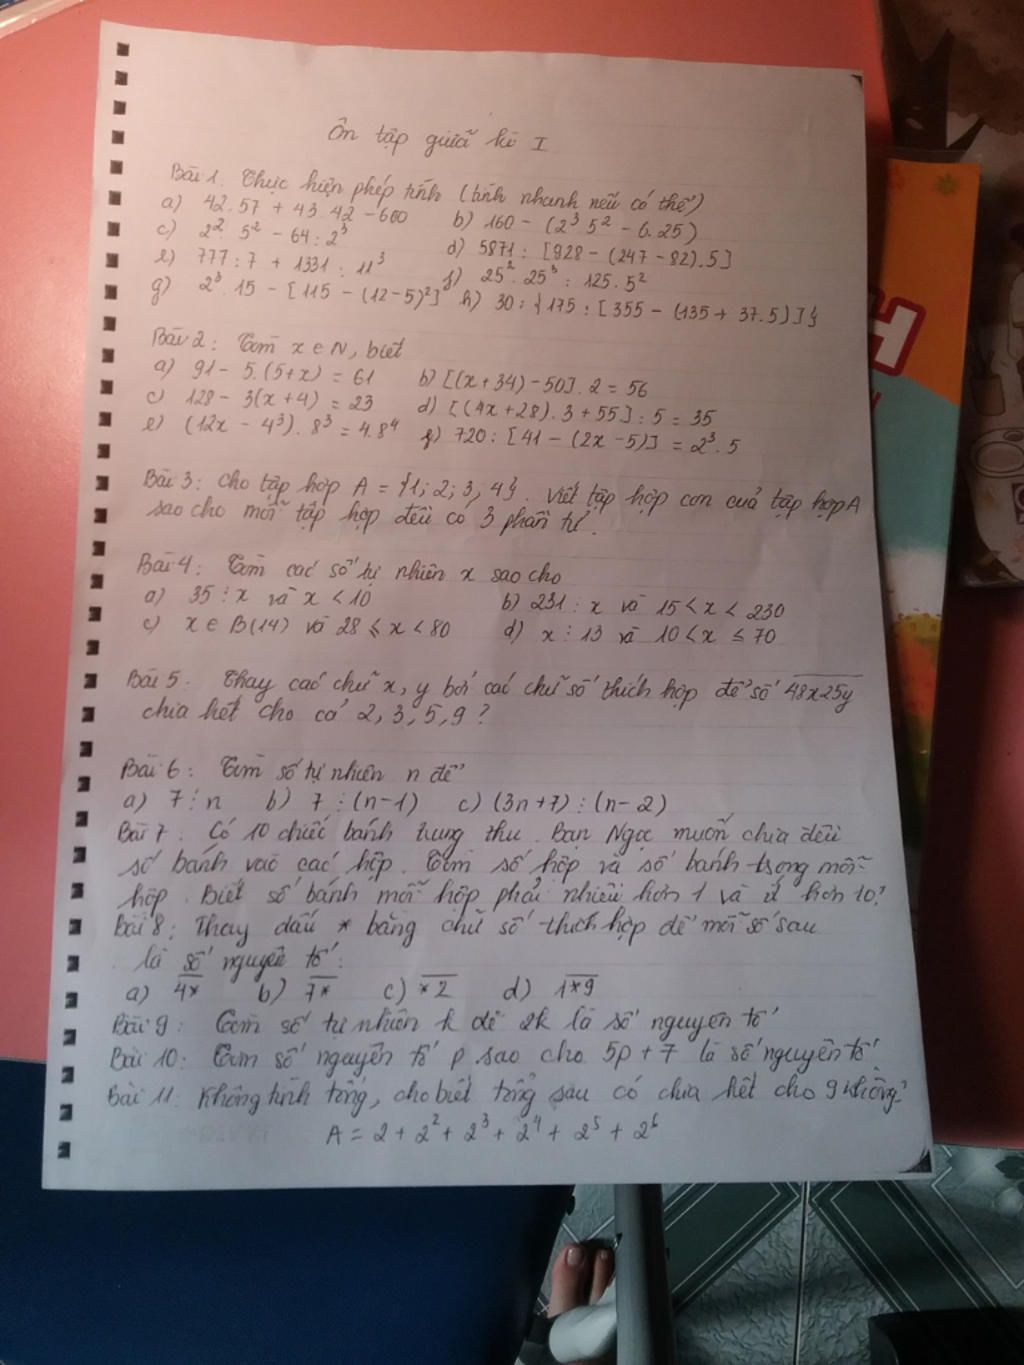 Ôn tập giữa kì I
Bài 1. Thực hiện phép tính (tính nhanh nếu có thể)
a) 42.57 + 43.42 - 600 b) 160 - (2³.5² - 6.25)
c) 2².5² - 64 : 2³ d) 5871 : [928 - (247 - 82).5]
e) 777 : 7 + 1331 : 11³ f) 25².25³ : 125.5²
g) 2³.15 - [115 - (12-5)²] h) 30 : {175 : [355 - (135 + 37.5)]}
Bài 2 : Tìm x ∈ N, biết
a) 91 - 5.(5+x) = 61 b) [(x + 34) - 50].2 = 56
c) 128 - 3(x + 4) = 23 d) [(4x + 28).3 + 55] : 5 = 35
e) (12x - 4³).8³ = 4.8⁴ f) 720 : [41 - (2x - 5)] = 2³.5
Bài 3 : Cho tập hợp A = {1; 2; 3; 4}. Viết tập hợp con của tập hợp A
sao cho mỗi tập hợp đều có 3 phần tử.
Bài 4 : Tìm các số tự nhiên x sao cho
a) 35 ⋮ x và x < 10 b) 231 ⋮ x và 15 < x < 230
c) x ∈ B(14) và 28 ≤ x < 80 d) x ⋮ 13 và 10 < x ≤ 70
Bài 5 : Thay các chữ x, y bởi các chữ số thích hợp để số 48x25y
chia hết cho cả 2, 3, 5, 9 ?
Bài 6 : Tìm số tự nhiên n để
a) 7 ⋮ n b) 7 ⋮ (n-1) c) (3n+7) ⋮ (n-2)
Bài 7 : Có 10 chiếc bánh trung thu. Bạn Ngọc muốn chia đều
số bánh vào các hộp. Tìm số hộp và số bánh trong mỗi
hộp. Biết số bánh mỗi hộp phải nhiều hơn 1 và ít hơn 10?
Bài 8 : Thay dấu * bằng chữ số thích hợp để mỗi số sau
là số nguyên tố :
a) 4* b) 7* c) *2 d) 1*9
Bài 9 : Tìm số tự nhiên k để 2k là số nguyên tố
Bài 10 : Tìm số nguyên tố p sao cho 5p + 7 là số nguyên tố
Bài 11 : Không tính tổng, cho biết tổng sau có chia hết cho 9 không?
A = 2 + 2² + 2³ + 2⁴ + 2⁵ + 2⁶
H